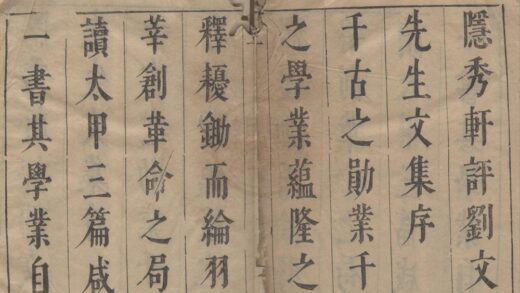 隱秀軒評劉文
先生文集序
千古之勛業千
之學業蘊隆之
釋耰鋤而綸羽
莘創革命之局
讀太甲三篇咸
一書其學業自